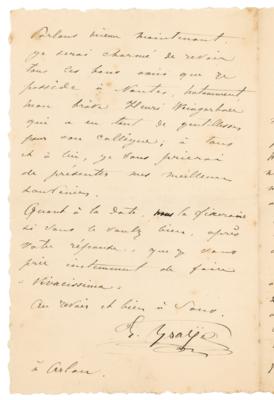 Parlons mieux maintenant
je serai charmé de revoir
tous ces bons amis que je
possède à Nantes, notamment
mon brave Henri Weingaertner
qui a eu tant de gentillesses
pour son collègue; à tous
et à lui, je vous prierai
de présenter mes meilleurs
souvenirs.
Quant à la date, nous la fixerons
si vous le voulez bien, après
votre réponse, que je vous
prie instamment de faire
"Vivacissima".
Au revoir et bien à vous.
E. Ysaÿe
à Arlon.